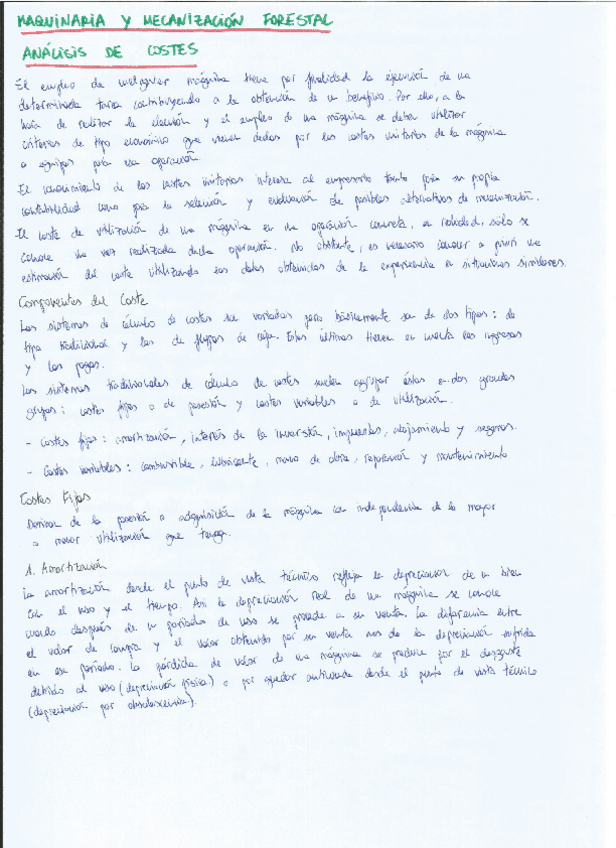 MAQUINARIA Y MECANIZACIÓN FORESTAL
ANÁLISIS DE COSTES
El empleo de cualquier máquina tiene por finalidad la ejecución de una
determinada tarea contribuyendo a la obtención de un beneficio. Por ello, a la
hora de realizar la elección y el empleo de una máquina se deben utilizar
criterios de tipo económico que vienen dados por los costes unitarios de la máquina
o equipos para esa operación.
El conocimiento de los costes unitarios interesa al empresario tanto para su propia
contabilidad como para la selección y evaluación de posibles alternativas de mecanización.
El coste de utilización de una máquina en una operación concreta, en realidad, sólo se
conoce una vez realizada dicha operación. No obstante, es necesario conocer a priori una
estimación del coste utilizando los datos obtenidos de la experiencia en situaciones similares.
Componentes del Coste
Los sistemas de cálculo de costes son variados pero básicamente son de dos tipos: de
tipo tradicional y los de flujos de caja. Estos últimos tienen en cuenta los ingresos
y los pagos.
Los sistemas tradicionales de cálculo de costes suelen agrupar éstos en dos grandes
grupos: costes fijos o de posesión y costes variables o de utilización.
- Costes fijos: amortización, interés de la inversión, impuestos, alojamiento y seguros.
- Costes variables: combustible, lubricante, mano de obra, reparación y mantenimiento
Costes Fijos
Derivan de la posesión o adquisición de la máquina con independencia de la mayor
o menor utilización que tenga.
1. Amortización
La amortización desde el punto de vista técnico refleja la depreciación de un bien
con el uso y el tiempo. Así la depreciación real de una máquina se conoce
cuando después de un período de uso se procede a su venta. La diferencia entre
el valor de compra y el valor obtenido por su venta nos da la depreciación sufrida
en ese período. La pérdida de valor de una máquina se produce por el desgaste
debido al uso (depreciación física) o por quedar anticuada desde el punto de vista técnico
(depreciación por obsolescencia).